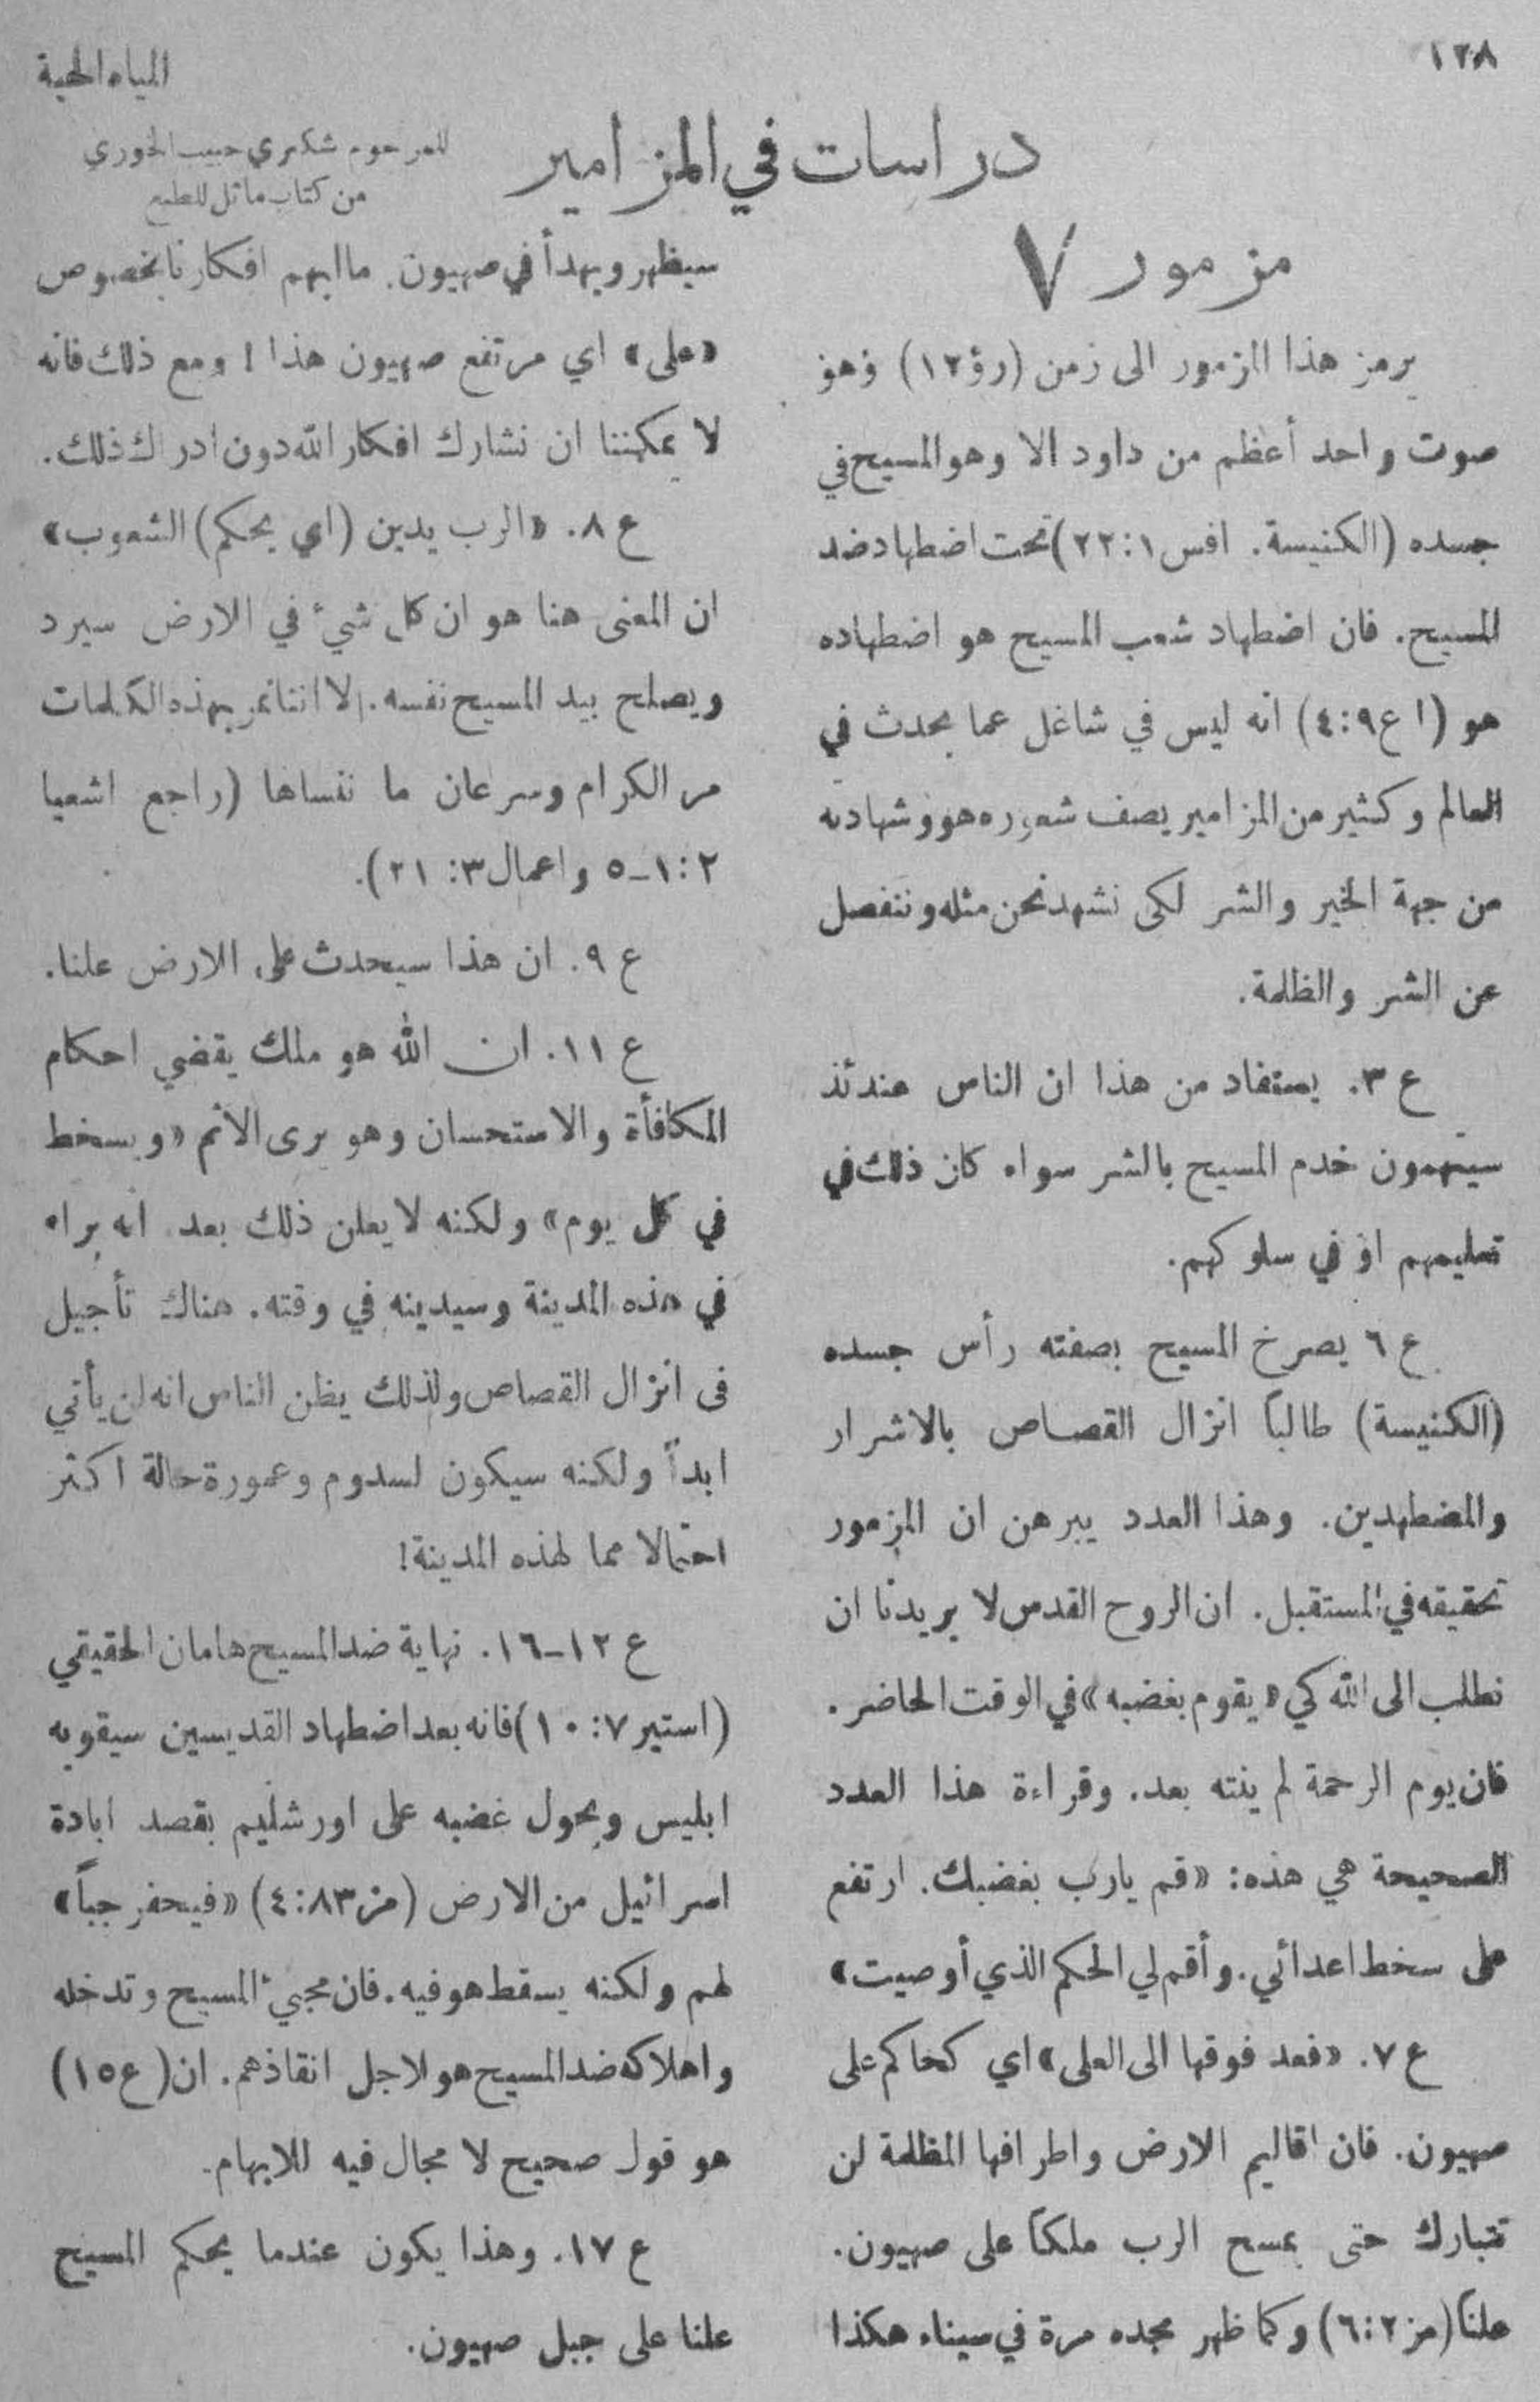 ١٢٨
المياه الحية
دراسات في المزامير
للمرحوم شكري حبيب الخوري
من كتاب ماثل للطبع
مزمور ٧
يرمز هذا المزمور الى زمن (رؤ١٢) وهو
صوت واحد أعظم من داود الا وهو المسيح في
جسده (الكنيسة. افس ١: ٢٢) تحت اضطهاد ضد
المسيح. فان اضطهاد شعب المسيح هو اضطهاده
هو (ا ع ٩: ٤) انه ليس في شاغل عما يحدث في
العالم وكثير من المزامير يصف شعوره هو وشهادته
من جهة الخير والشر لكى نشهد نحن مثله وننفصل
عن الشر والظلمة.
ع ٣. يستفاد من هذا ان الناس عندئذ
سيتهمون خدم المسيح بالشر سواء كان ذلك في
تعليمهم او في سلوكهم.
ع ٦ يصرخ المسيح بصفته رأس جسده
(الكنيسة) طالباً انزال القصاص بالاشرار
والمضطهدين. وهذا العدد يبرهن ان المزمور
تحقيقه في المستقبل. ان الروح القدس لا يريدنا ان
نطلب الى الله كي «يقوم بغضبه» في الوقت الحاضر.
فان يوم الرحمة لم ينته بعد. وقراءة هذا العدد
الصحيحة هي هذه: «قم يارب بغضبك. ارتفع
على سخط اعدائي. وأقم لي الحكم الذي أوصيت»
ع ٧. «فعد فوقها الى العلى» اي كحاكم على
صهيون. فان اقاليم الارض واطرافها المظلمة لن
تتبارك حتى يمسح الرب ملكاً على صهيون.
علناً (مز ٢: ٦) وكما ظهر مجده مرة في سيناء هكذا
سيظهر ويهدأ في صهيون. ما ابهم افكارنا بخصوص
«على» اي مرتفع صهيون هذا! ومع ذلك فانه
لا يمكننا ان نشارك افكار الله دون ادراك ذلك.
ع ٨. «الرب يدين (اي يحكم) الشعوب»
ان المعنى هنا هو ان كل شيء في الارض سيرد
ويصلح بيد المسيح نفسه. الا اننا نمر بهذه الكلمات
مر الكرام وسرعان ما ننساها (راجع اشعيا
٢: ١-٥ واعمال ٣: ٢١).
ع ٩. ان هذا سيحدث على الارض علنا.
ع ١١. ان الله هو ملك يقضي احكام
المكافأة والاستحسان وهو يرى الاثم «ويسخط
في كل يوم» ولكنه لا يعلن ذلك بعد انه يراه
في هذه المدينة وسيدينه في وقته. هناك تأجيل
فى انزال القصاص ولذلك يظن الناس انه لن يأتي
ابداً ولكنه سيكون لسدوم وعمورة حالة اكثر
احتمالا مما لهذه المدينة!
ع ١٢-١٦. نهاية ضد المسيح هامان الحقيقي
(استير ٧: ١٠) فانه بعد اضطهاد القديسين سيقويه
ابليس ويحول غضبه على اورشليم بقصد ابادة
اسرائيل من الارض (مز ٨٣: ٤) «فيحفر جباً»
لهم ولكنه يسقط هو فيه. فان مجيء المسيح وتدخله
واهلاكه ضد المسيح هو لاجل انقاذهم. ان (ع ١٥)
هو قول صحيح لا مجال فيه للابهام.
ع ١٧. وهذا يكون عندما يحكم المسيح
علنا على جبل صهيون.